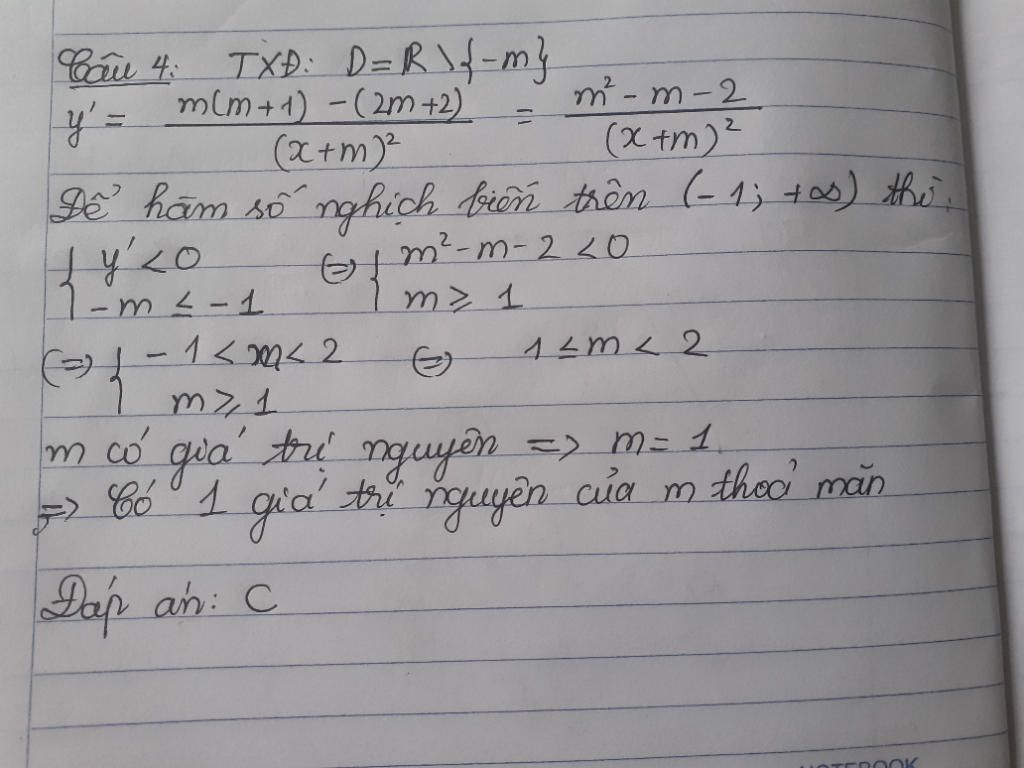 Câu 4: TXĐ: D = R \ {-m}
y' = m(m+1) - (2m+2) / (x+m)² = m² - m - 2 / (x+m)²
Để hàm số nghịch biến trên (-1; +∞) thì:
{ y' < 0 (=) { m² - m - 2 < 0
-m ≤ -1 m ≥ 1
(=) { -1 < m < 2 (=) 1 ≤ m < 2
m ≥ 1
m có giá trị nguyên => m = 1
=> Có 1 giá trị nguyên của m thoả mãn
Đáp án: C
NOTEBOOK